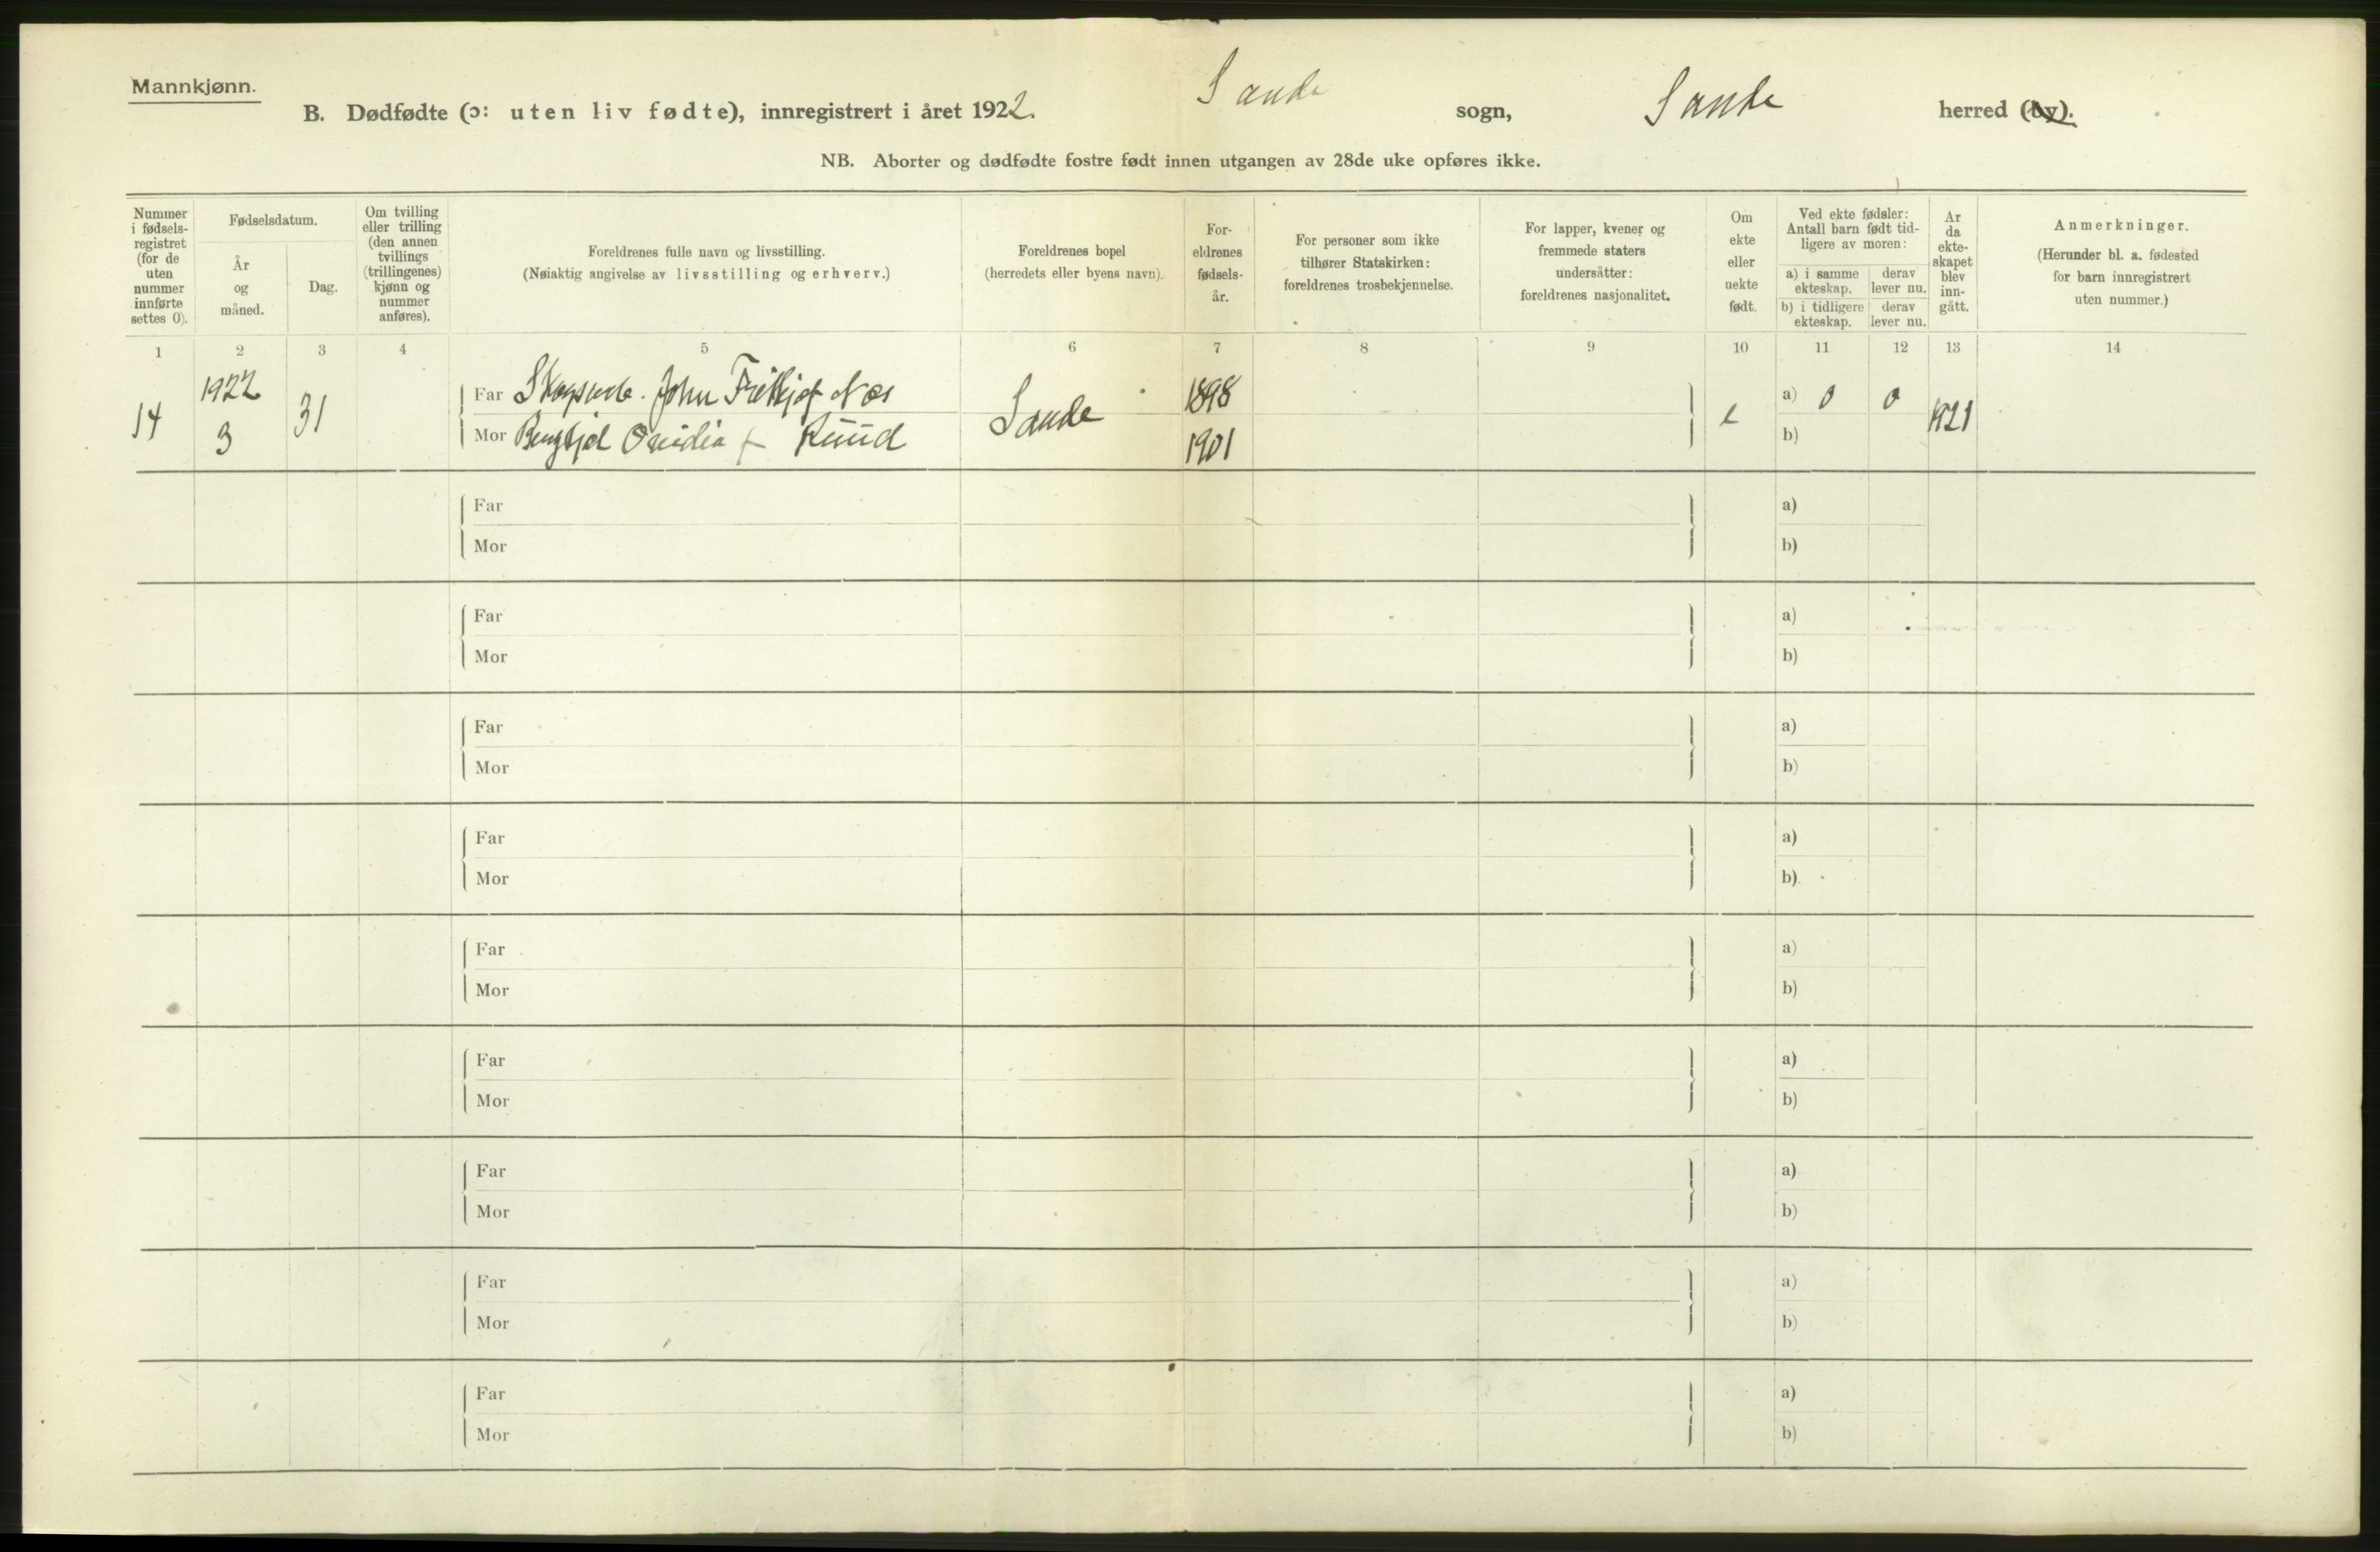 Mannkjønn.
B. Dødfødte (ɔ: uten liv fødte), innregistrert i året 1922. Sande sogn, Sande herred (by).
NB. Aborter og dødfødte fostre født innen utgangen av 28de uke opføres ikke.
Nummer i fødsels-registret (for de uten nummer innførte settes 0).
Fødselsdatum.
År og måned.
Dag.
Om tvilling eller trilling (den annen tvillings (trillingenes) kjønn og nummer anføres).
Foreldrenes fulle navn og livsstilling.
(Nøiaktig angivelse av livsstilling og erhverv.)
Foreldrenes bopel
(herredets eller byens navn).
For-eldrenes fødsels-år.
For personer som ikke tilhører Statskirken: foreldrenes trosbekjennelse.
For lapper, kvener og fremmede staters undersåtter: foreldrenes nasjonalitet.
Om ekte eller uekte født.
Ved ekte fødsler: Antall barn født tid-ligere av moren:
a) i samme ekteskap. derav lever nu.
b) i tidligere ekteskap. derav lever nu.
År da ekte-skapet blev inn-gått.
Anmerkninger.
(Herunder bl. a. fødested for barn innregistrert uten nummer.)
1 2 3 4 5 6 7 8 9 10 11 12 13 14
14 1922 3 31
Far John Næs
Mor f. Ruud
Sande
1898
1901
e
a) 0 0
b)
1921
Far a)
Mor b)
Far a)
Mor b)
Far a)
Mor b)
Far a)
Mor b)
Far a)
Mor b)
Far a)
Mor b)
Far a)
Mor b)
Far a)
Mor b)
Far a)
Mor b)